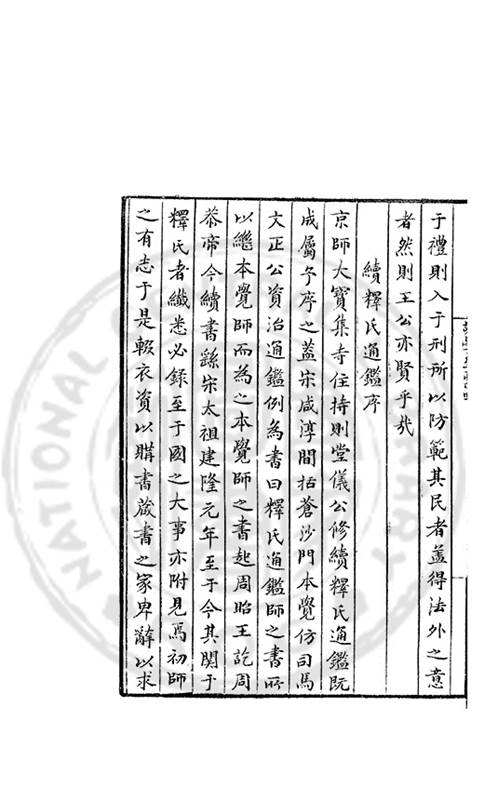 于禮則入于刑所以防範其民者蓋得法外之意
者然則王公亦賢乎哉
續釋氏通鑑序
京師大寶集寺住持則堂儀公修續釋氏通鑑既
成屬予序之蓋宋咸淳間括蒼沙門本覺仿司馬
文正公資治通鑑例為書曰釋氏通鑑師之書所
以繼本覺師而為之本覺師之書起周昭王訖周
恭帝今續書繇宋太祖建隆元年至于今其關于
釋氏者纖悉必錄至于國之大事亦附見焉初師
之有志于是輟衣資以購書藏書之家卑辭以求
NATIONAL